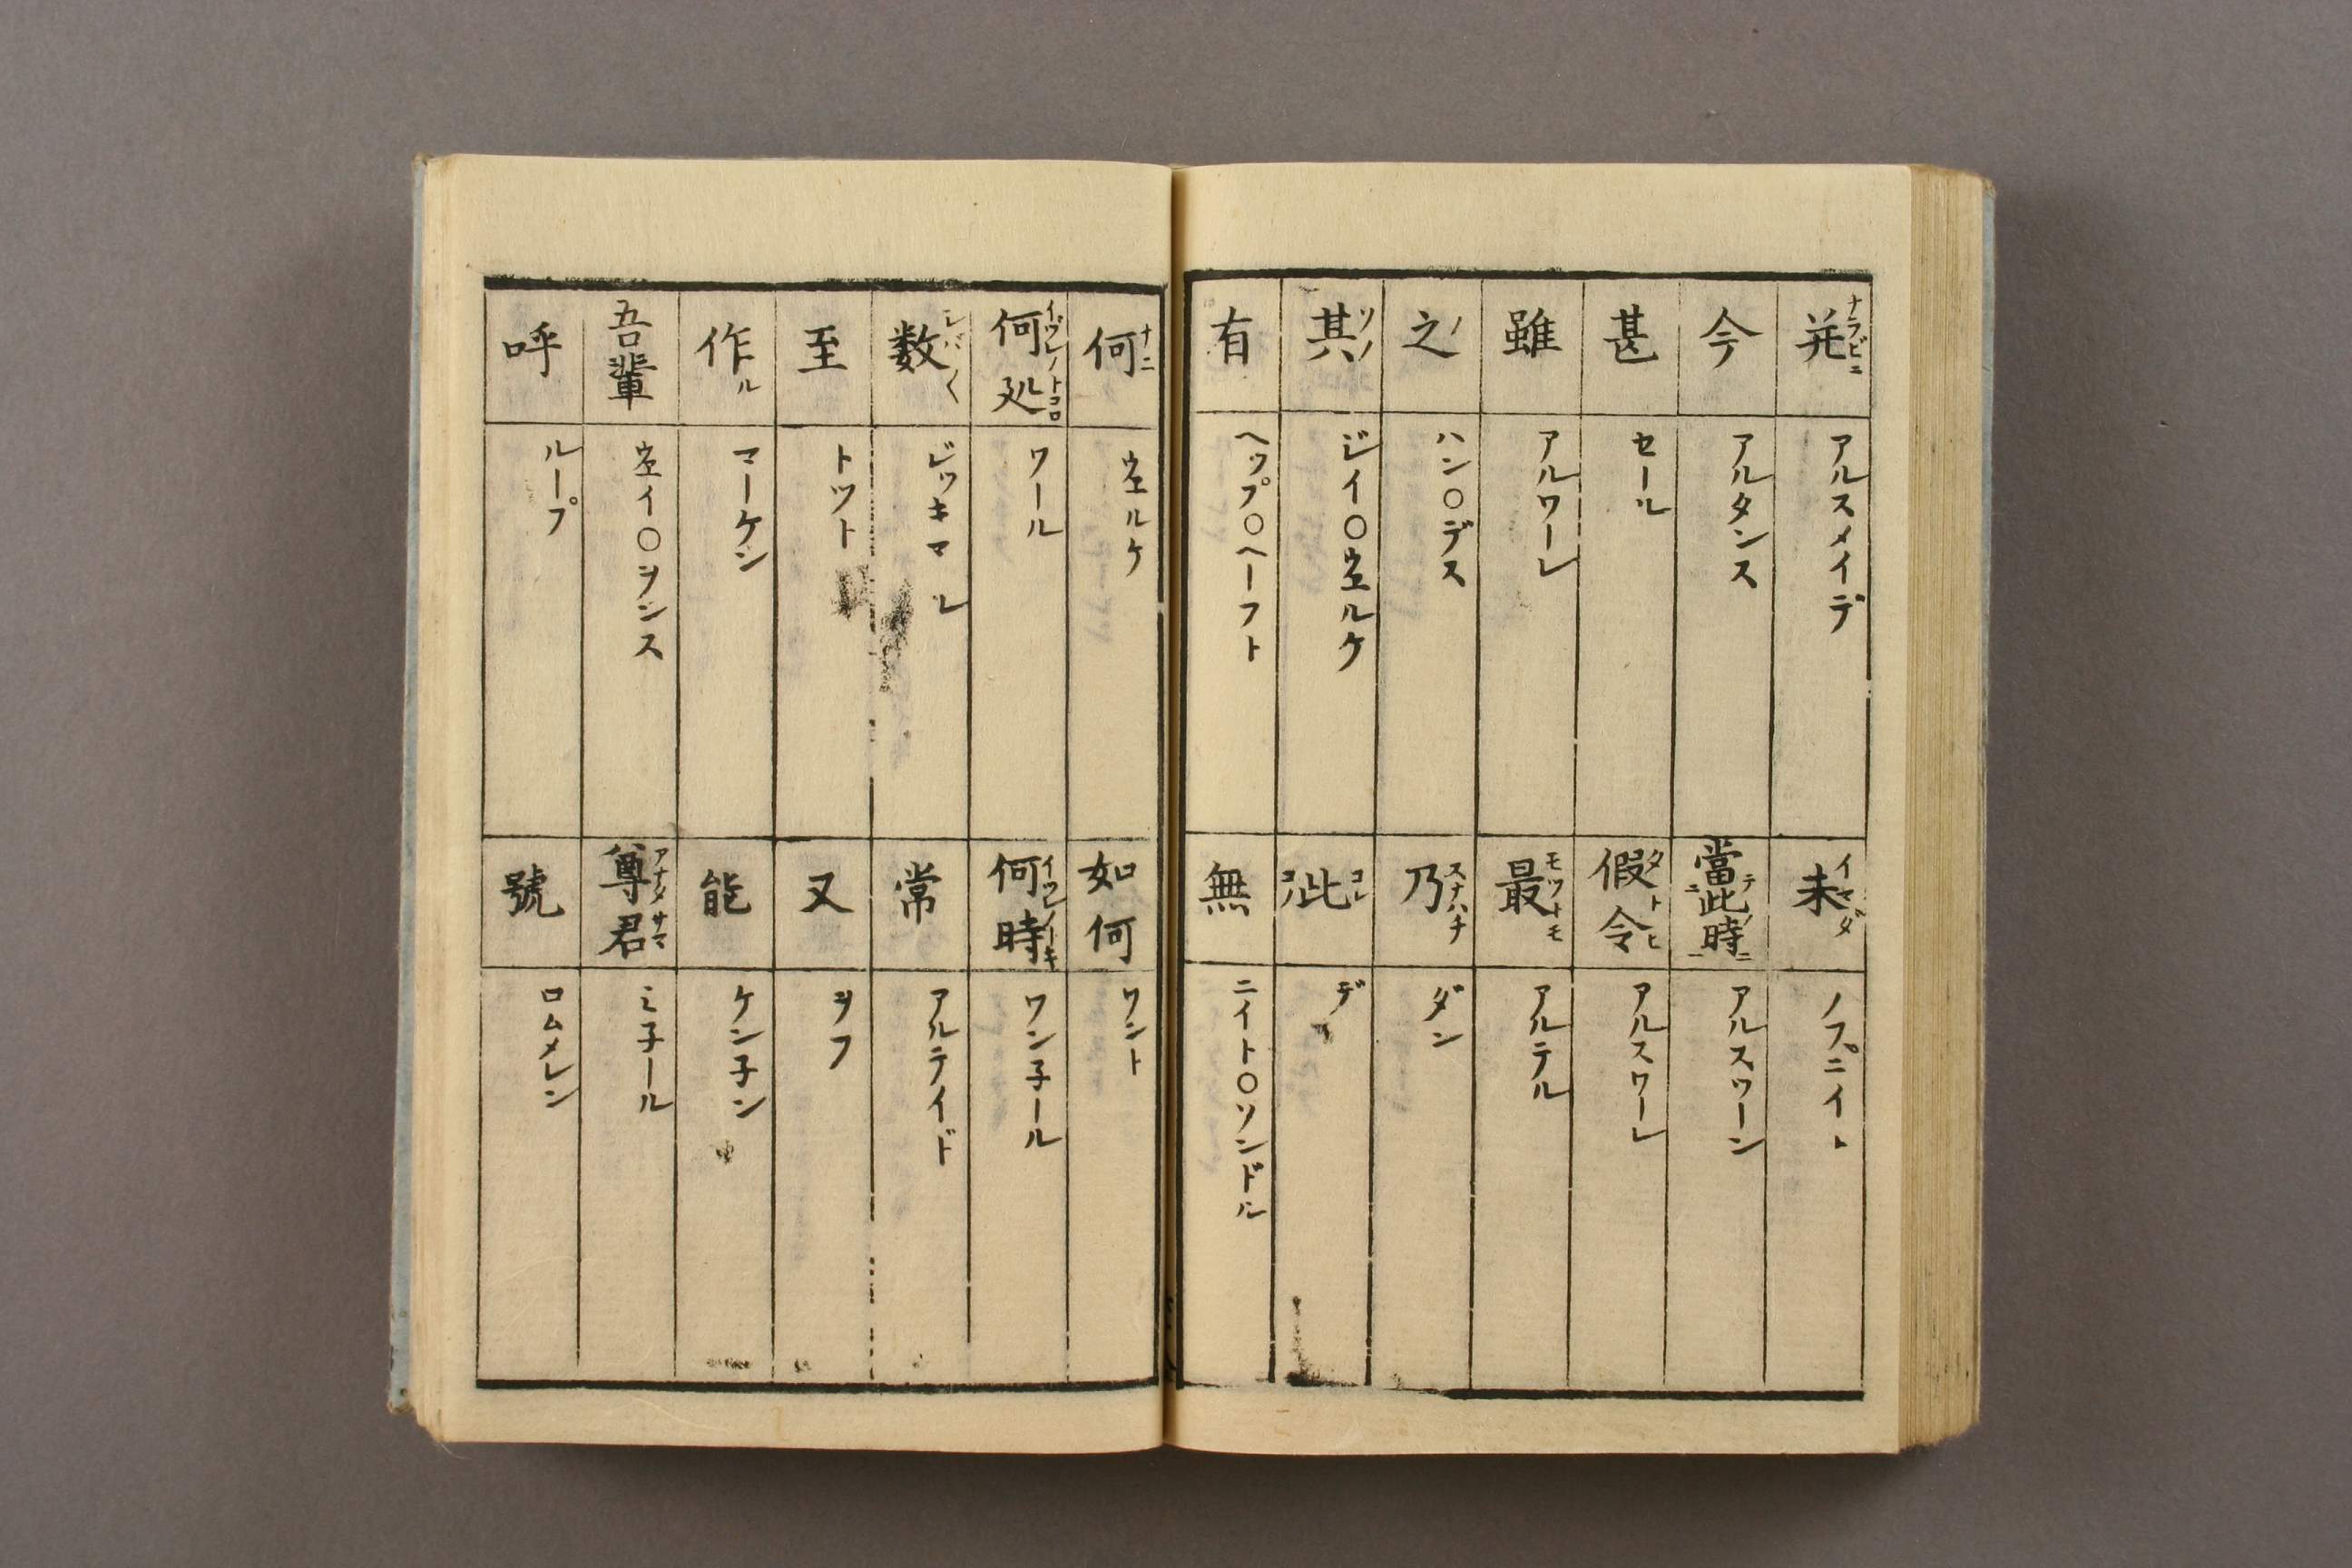 并 ナラビニ アルスメイデ
未 イマダ ノプニイト
今 アルタンス
當此時 ニ テ ノ ニ アルスワーン
甚 セール
假令 タトヒ アルスワーレ
雖 アルワーレ
最 モツトモ アルテル
之 ノ ハン〇デス
乃 スナハチ ダン
其 ソノ ジイ〇ヱルケ
此 コレ コノ デ
有 ヘップ〇ヘーフト
無 ニイト〇ソンドル
何 ナニ ヱルケ
如何 ワント
何処 イヅレノトコロ ワール
何時 イツレノトキ ワン子ール
数 シバ〱 ビッキマール
常 アルテイド
至 トツト
又 ヲフ
作 ル マーケン
能 ケン子ン
吾輩 ヱイ〇ヲンス
尊君 アナタサマ ミ子ール
呼 ループ
號 ロムメレン